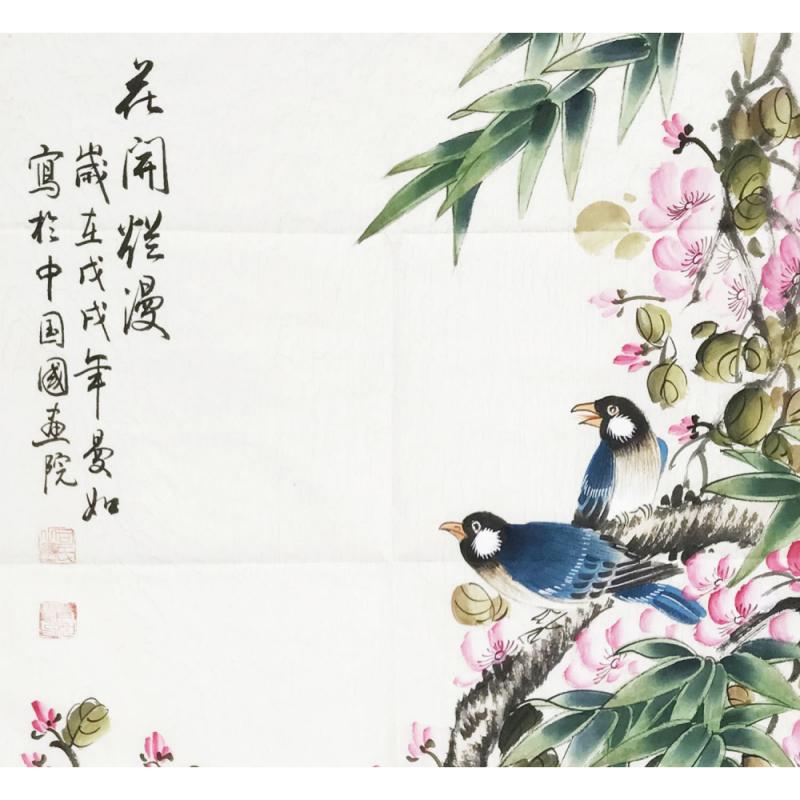 花开烂漫
歲在戊戌年曼如
寫於中国國画院